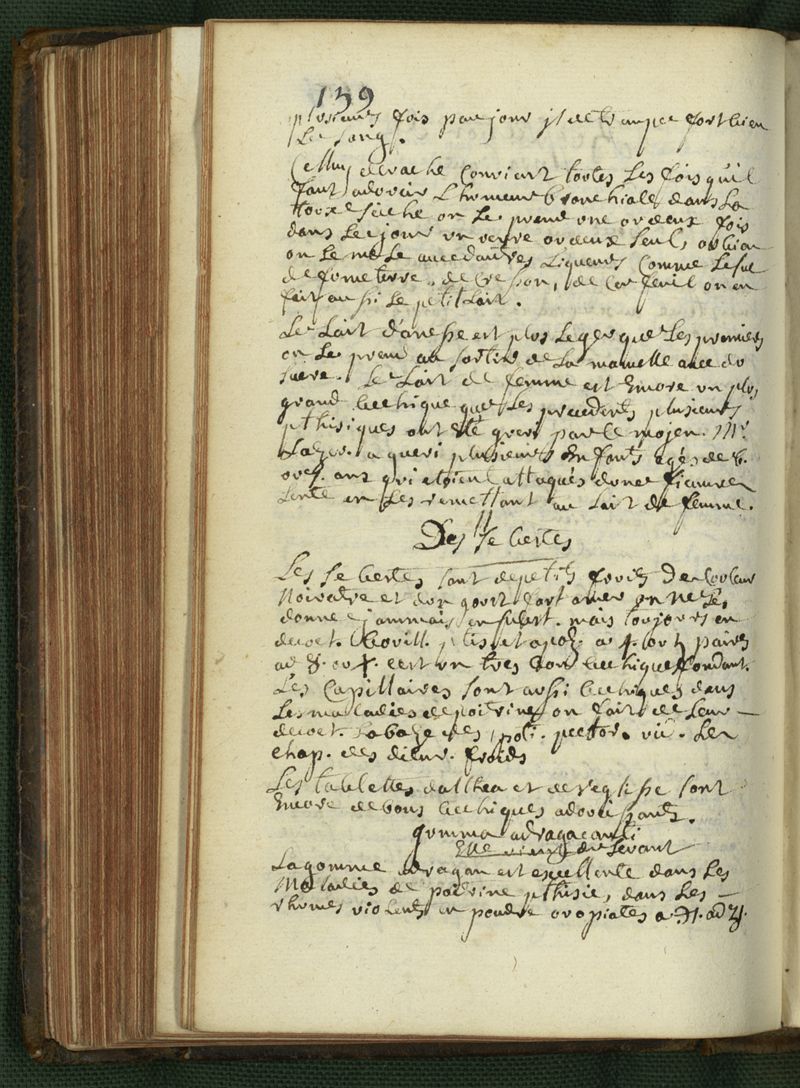 139
plusieurs fois par jour il detrampe fort bien
Le sang.
Celluy de vache Convient toutes Les fois qu'il
faut adoucir L'humeur bronchiale, dans La
toux seche on Le prend une ou deux fois
dans Le jour un verre ou deux seul, ou bien
on Le mele avec d'autres Liqueurs Comme Le suc
de fumeterre, de Cresson, de Cerfeuil on en
fait aussi Le petit Lait.
Le Lait d'anesse est plus Leger que Les premiers
on Le prend au sortir de La mamelle avec du
sucre. Le Lait de femme est Encore un plus
grand bechique que Les precedents plusieurs
pthisiques ont été gueri par le mojen. Mr
a gueri plusieurs Enfants agés de 6.
ou 7. ans qui etoient attaqués d'une fievre
Lente en Les remettant au Lait de femme.
Des sebestes
Les sebestes sont de petits fruits De Couleur
Noiratre et d'un gout fort amer on ne Le
donne jammais en subst. mais toujours en
decoct. bouill. ptis. et apoz. a 4. ou 5 paires
ad 8. ou X. c'est un tres bon bechique fondant.
Les Capillaires sont aussi bechiques dans
Les maladies de poitrine on fait de Leur
decoct. La baze des poti. pector. vid. Le
chap. des dieur. froids
Les tablettes d'althea et de reglisse sont
Encore de bons bechiques adoucissants.
gumma adragacanti
Elle vient du Levant
La gomme adragan est excellente dans Les
Maladies de poitrine pthisie, dans Les
rhumes violents en poudre ou opiates a